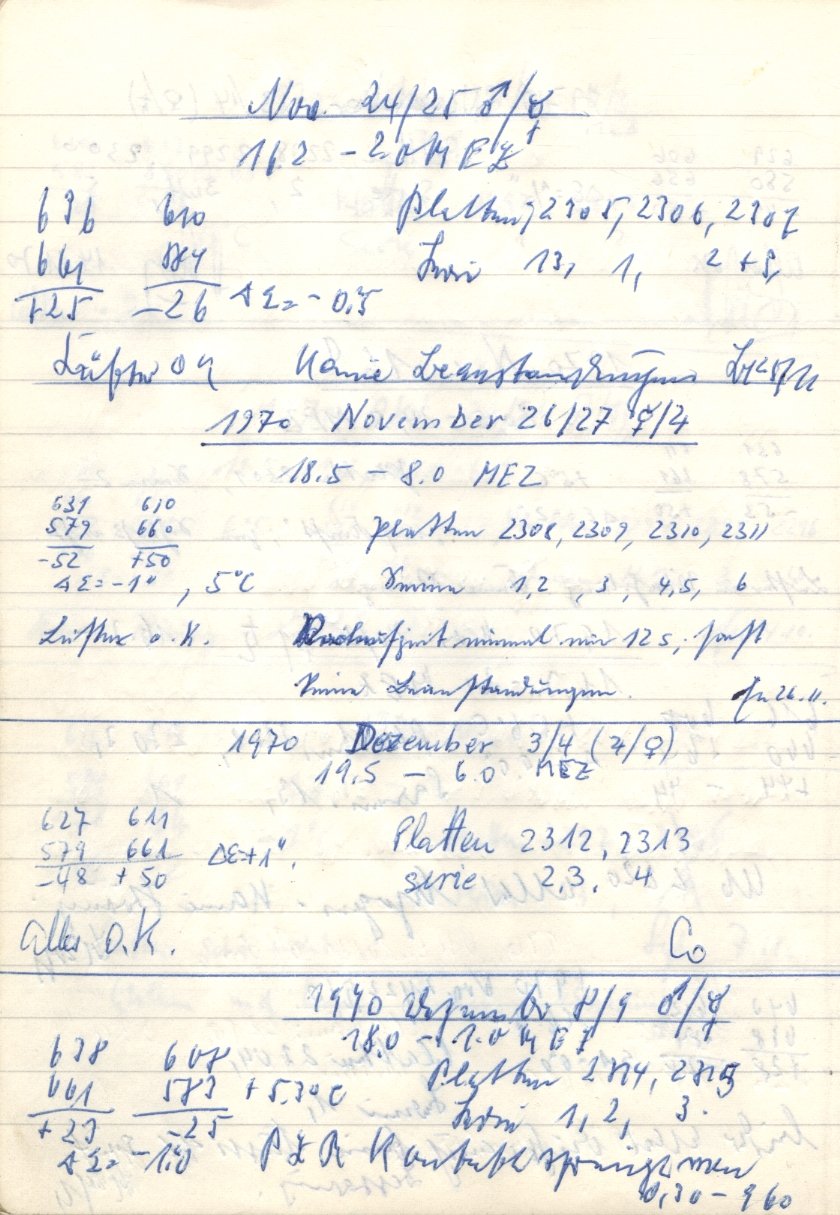 Nov. 24/25 ♂/☿
16.2 – 2.0 MEZ
636 610 Platten 2305, 2306, 2307
661 584 Serie 13, 1, 2 + 3,
+25 –26 ΔΣ = – 0,"5
Lüfter OK Keine Beanstandungen
1970 November 26/27 ☿/♃
18.5 – 8.0 MEZ
631 610
579 660 Platten 2308, 2309, 2310, 2311
–52 +50
ΔΣ = –1" , 5°C Serie 1,2 , 3 , 4,5, 6
Lüfter o.K. nur 12 s, sonst
keine Beanstandungen. 26.11.
1970 Dezember 3/4 (♃/♀)
19.5 – 6.0 MEZ
627 611 Platten 2312, 2313
579 661 ΔΣ+1".
–48 +50 serie 2,3, 4
alles O.K. Co
1970 Dezember 8/9 ♂/☿
18.0 – 1.0 MEZ
638 608 Platten 2314, 2315
661 583 +5.3°C
+23 –25 Serie 1, 2, 3.
ΔΣ = –1.0
0,30 – 960